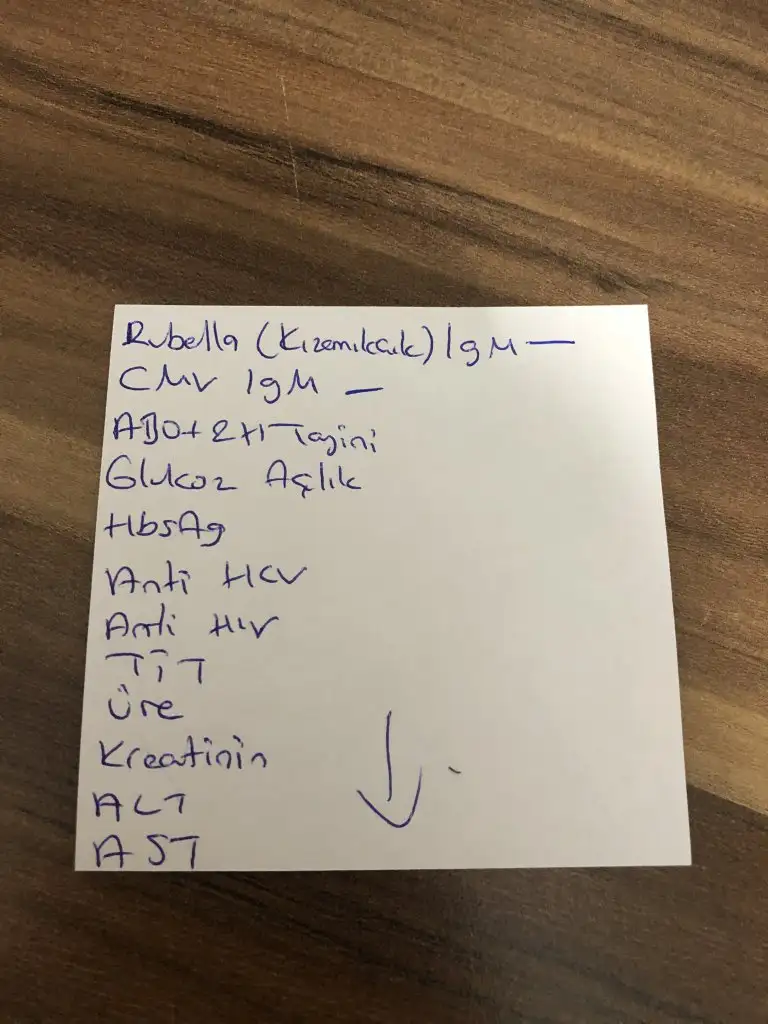 Rubella (Kızamıkcık) IgM —
CMV IgM —
ABO+RH Tayini
Glukoz Açlık
HbsAg
Anti HCV
Anti HIV
TİT
Üre
Kreatinin
ALT
AST